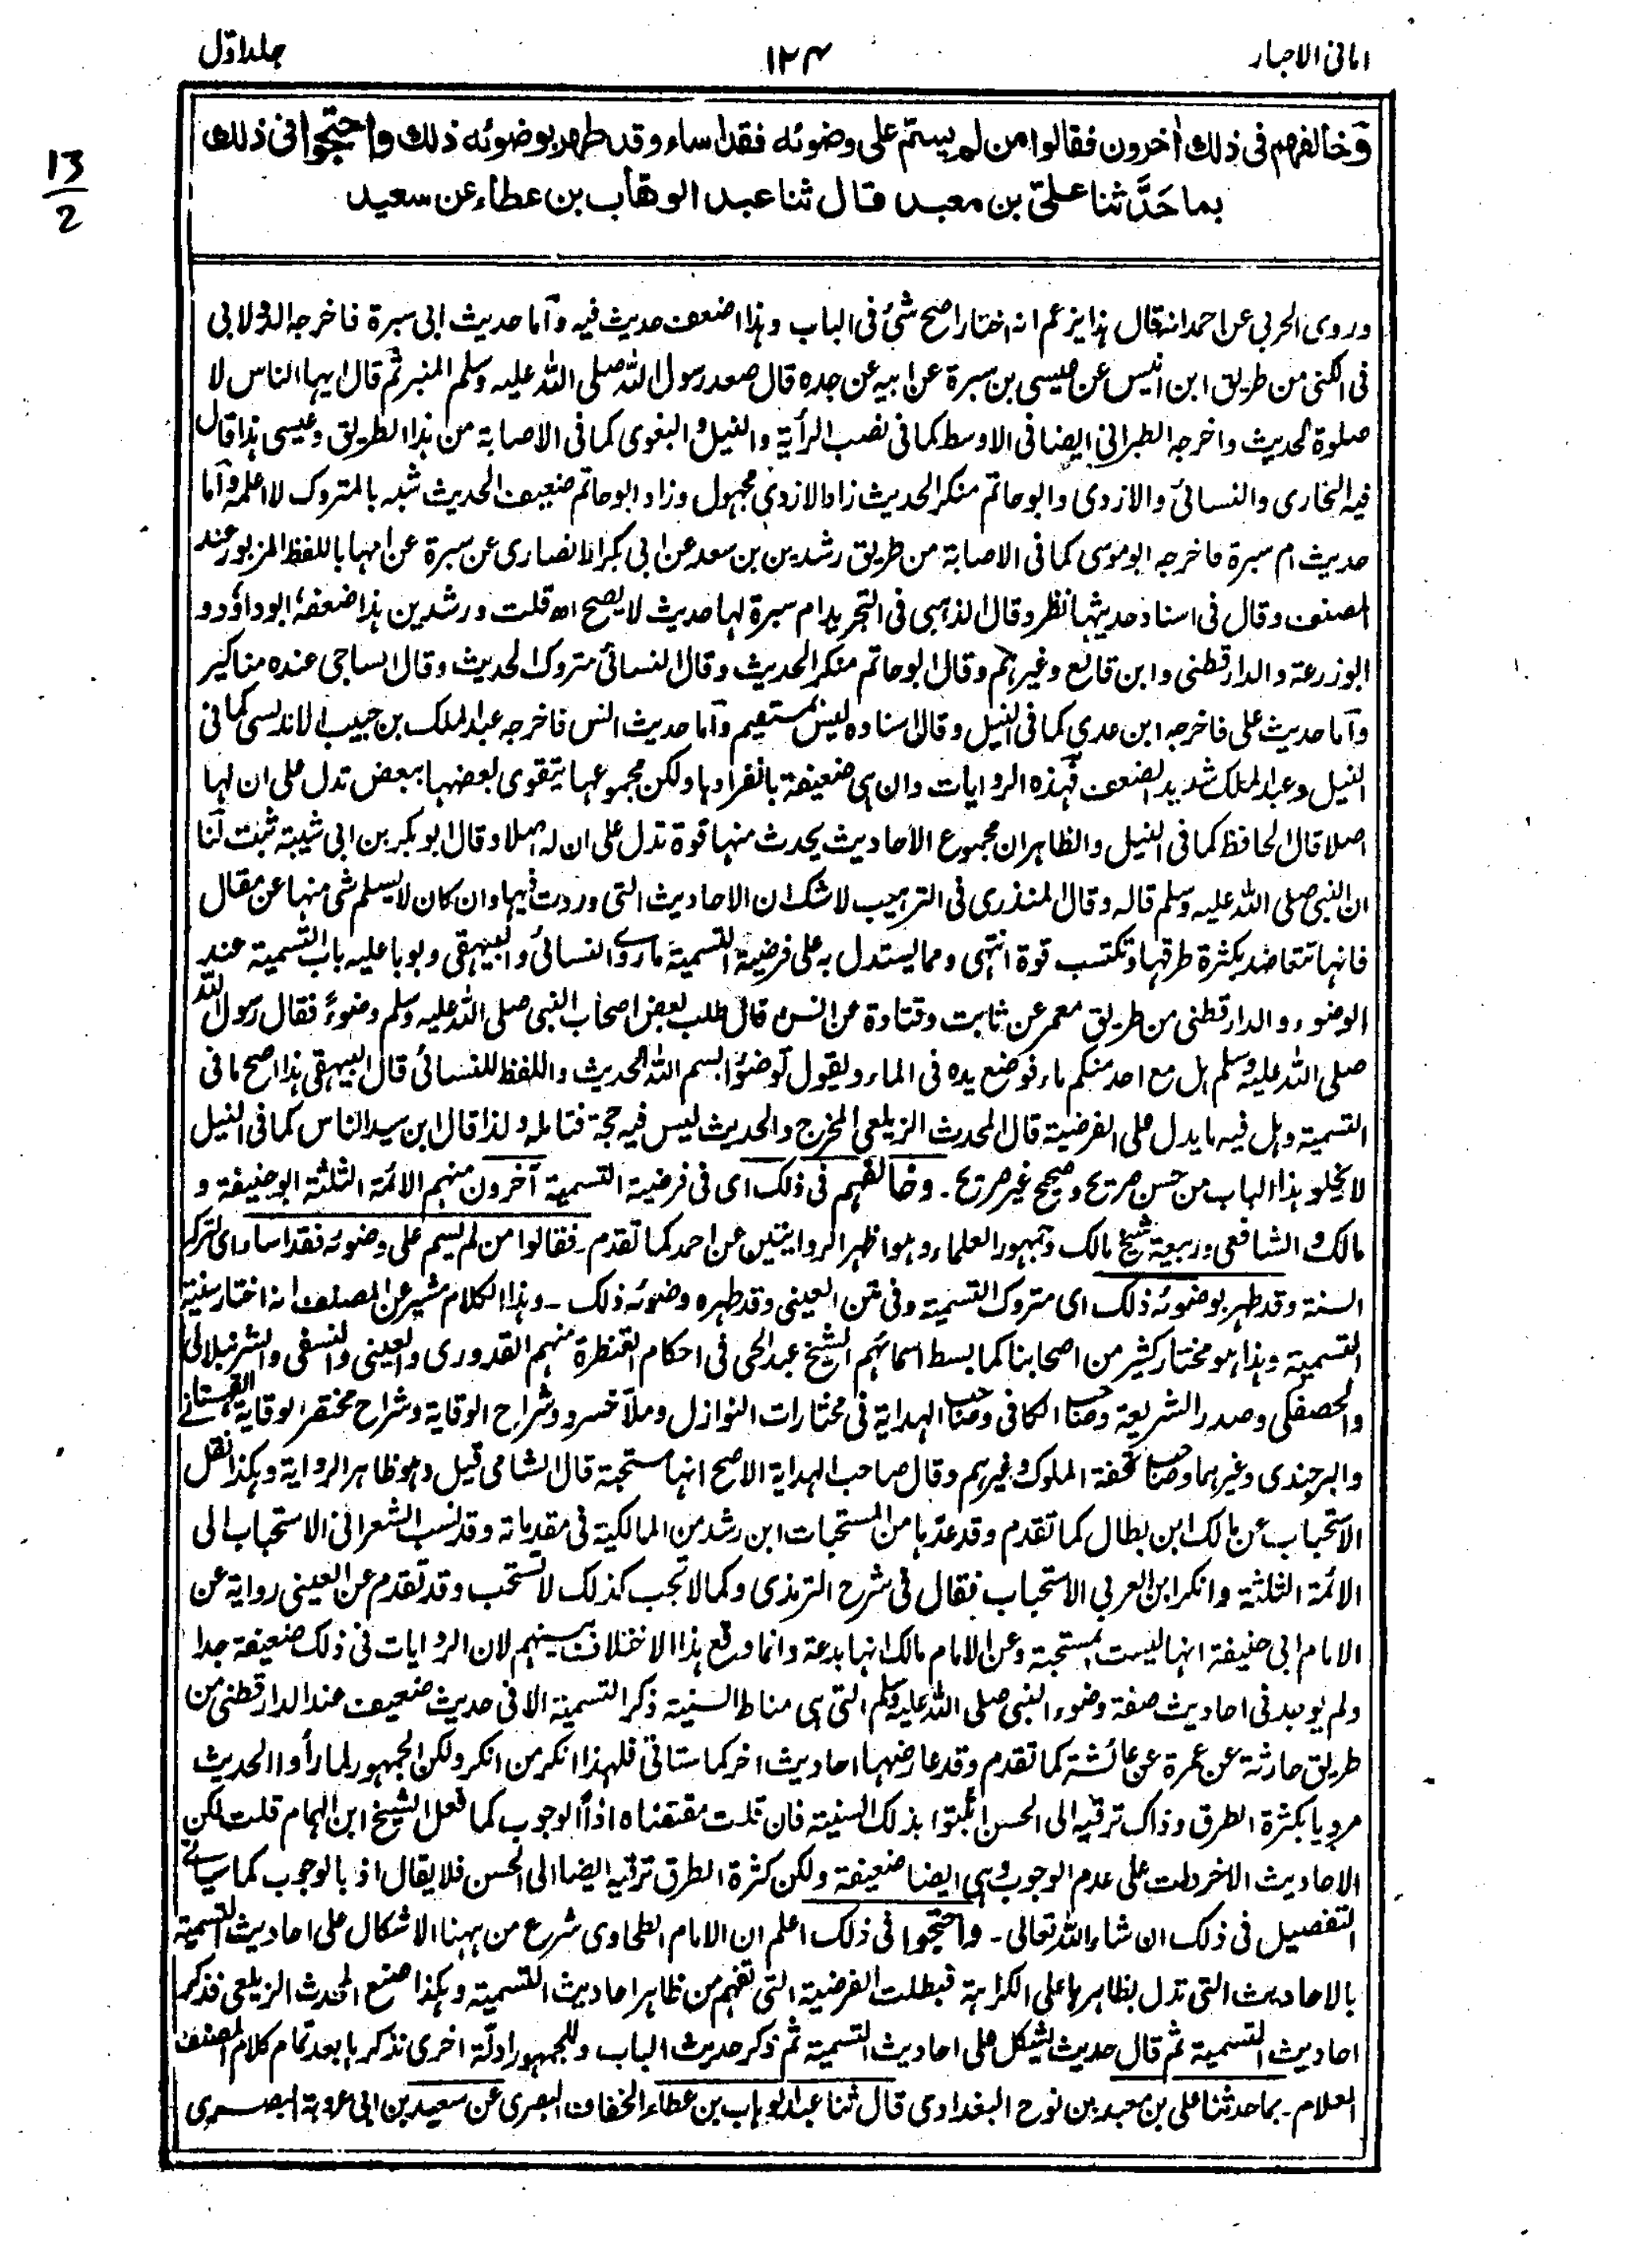 امانی الاحبار
۱۲۴
جلد اوّل
13
2
وخالفهم فی ذلك اٰخرون فقالوا من لم یسمّ علی وضوئه فقد اساء وقد طهر بوضوئه ذلك واحتجوا فی ذلك
بما حَدَّثنا علیّ بن معبد قال ثنا عبد الوهاب بن عطاء عن سعید
وروی الحربی عن احمد انه قال هذا یزعم انه اختار اصح شئ فی الباب وهذا اضعف حدیث فیه وآما حدیث ابی سبرة فاخرجه الدولابی
فی الکنی من طریق ابن انیس عن عیسی بن سبرة عن ابیه عن جده قال صعد رسول الله صلی الله علیه وسلم المنبر ثم قال ایها الناس لا
صلوة الحدیث واخرجه الطبرانی ایضا فی الاوسط کما فی نصب الرأیة والنیل والبغوی کما فی الاصابة من هذا الطریق وعیسی هذا قال
فیه البخاری والنسائی والازدی وابو حاتم منکر الحدیث زاد الازدی مجهول وزاد ابو حاتم ضعیف الحدیث شبه بالمتروک لا اعلمه وآما
حدیث ام سبرة فاخرجه ابو موسی کما فی الاصابة من طریق رشدین بن سعد عن ابی بکر الانصاری عن سبرة عن امها باللفظ المزبور عند
المصنف وقال فی اسناد حدیثها نظر وقال الذهبی فی التجرید ام سبرة لها حدیث لا یصح اھ قلت ورشدین هذا ضعفه ابو داؤد و
ابو زرعة والدارقطنی وابن قانع وغیرهم وقال ابو حاتم منکر الحدیث وقال النسائی متروک الحدیث وقال الساجی عنده مناکیر
وآما حدیث علی فاخرجه ابن عدی کما فی النیل وقال اسناده لیس بمستقیم وآما حدیث انس فاخرجه عبد الملک بن حبیب الاندلسی کما فی
النیل وعبد الملک شدید الضعف فهذه الروایات وان هی ضعیفة بانفرادها ولکن مجموعها یتقوی بعضها ببعض تدل علی ان لها
اصلا قال الحافظ کما فی النیل والظاهر ان مجموع الاحادیث یحدث منها قوة تدل علی ان له اصلا وقال ابو بکر بن ابی شیبة ثبت لنا
ان النبی صلی الله علیه وسلم قاله وقال المنذری فی الترهیب لا شک ان الاحادیث التی وردت فیها وان کان لا یسلم شئ منها عن مقال
فانها تتعاضد بکثرة طرقها وتکتسب قوة انتهی ومما یستدل به علی فرضیة التسمیة ما رواه النسائی والبیهقی وبوبا علیه باب التسمیة عند
الوضوء والدارقطنی من طریق معمر عن ثابت وقتادة عن انس قال طلب بعض اصحاب النبی صلی الله علیه وسلم وضوءً فقال رسول الله
صلی الله علیه وسلم هل مع احد منکم ماء فوضع یده فی الماء ویقول توضؤا بسم الله الحدیث واللفظ للنسائی قال البیهقی هذا اصح ما فی
التسمیة وهل فیه ما یدل علی الفرضیة قال المحدث الزیلعی المخرج والحدیث لیس فیه حجة فتامله ولذا قال ابن سید الناس کما فی النیل
لا یخلو هذا الباب من حسن صریح وصحیح غیر صریح ۔ وخالفهم فی ذلک ای فی فرضیة التسمیة آخرون منهم الائمة الثلثة ابو حنیفة و
مالک والشافعی وربیعة شیخ مالک وجمهور العلماء وهو اظهر الروایتین عن احمد کما تقدم ۔ فقالوا من لم یسم علی وضوئه فقد اساء ای لترکه
السنة وقد طهر بوضوئه ذلک ای متروک التسمیة وفی متن العینی وقد طهره وضوئه ذلک ۔ وهذا الکلام مشیر عن المصنف انه اختار سنیة
التسمیة وهذا هو مختار کثیر من اصحابنا کما بسط اسمائهم الشیخ عبد الحی فی احکام القنطرة منهم القدوری والعینی والنسفی والشرنبلالی
والحصفکی وصدر الشریعة وصاحب الکافی وصاحب الهدایة فی مختارات النوازل وملا خسرو وشراح الوقایة وشراح مختصر الوقایة القهستانی
والبرجندی وغیرهما وصاحب تحفة الملوک وغیرهم وقال صاحب الهدایة الاصح انها مستحبة قال الشامی قیل وهو ظاهر الروایة وهکذا نقل
الاستحباب عن مالک ابن بطال کما تقدم وقد عدّها من المستحبات ابن رشد من المالکیة فی مقدماته وقد نسب الشعرانی الاستحباب الی
الائمة الثلثة وانکر ابن العربی الاستحباب فقال فی شرح الترمذی وکما لا تجب کذلک لا تستحب وقد تقدم عن العینی روایة عن
الامام ابی حنیفة انها لیست بمستحبة وعن الامام مالک انها بدعة وانما وقع هذا الاختلاف بینهم لان الروایات فی ذلک ضعیفة جدا
ولم یوجد فی احادیث صفة وضوء النبی صلی الله علیه وسلم التی هی مناط السنیة ذکر التسمیة الا فی حدیث ضعیف عند الدارقطنی من
طریق حارثة عن عمرة عن عائشة کما تقدم وقد عارضها احادیث اخر کما ستاتی فلهذا انکر من انکر ولکن الجمهور لما رأوا الحدیث
مرویا بکثرة الطرق وذاک ترقیه الی الحسن اثبتوا بذلک السنیة فان قلت مقتضاه اذاً الوجوب کما فعل الشیخ ابن الهمام قلت لکن
الاحادیث الاخر دلت علی عدم الوجوب وهی ایضا ضعیفة ولکن کثرة الطرق ترقیه ایضا الی الحسن فلا یقال اذ بالوجوب کما سیاتی
التفصیل فی ذلک ان شاء الله تعالی ۔ واحتجوا فی ذلک اعلم ان الامام الطحاوی شرع من ههنا الاشکال علی احادیث التسمیة
بالاحادیث التی تدل بظاهرها علی الکراهة فبطلت الفرضیة التی تفهم من ظاهر احادیث التسمیة وهکذا صنع المحدث الزیلعی فذکر
احادیث التسمیة ثم قال حدیث یشکل علی احادیث التسمیة ثم ذکر حدیث الباب وللجمهور ادلّة اخری نذکرها بعد تمام کلام المصنف
العلام ۔ بما حدثنا علی بن معبد بن نوح البغدادی قال ثنا عبد الوهاب بن عطاء الخفاف البصری عن سعید بن ابی عروبة البصری